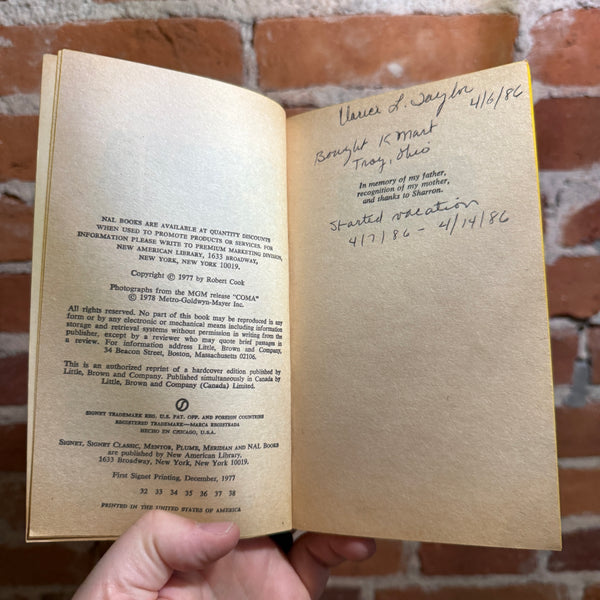 NAL BOOKS ARE AVAILABLE AT QUANTITY DISCOUNTS
WHEN USED TO PROMOTE PRODUCTS OR SERVICES. FOR
INFORMATION PLEASE WRITE TO PREMIUM MARKETING DIVISION,
NEW AMERICAN LIBRARY, 1633 BROADWAY,
NEW YORK, NEW YORK 10019.
Copyright © 1977 by Robert Cook
Photographs from the MGM release "COMA"
© 1978 Metro-Goldwyn-Mayer Inc.
All rights reserved. No part of this book may be reproduced in any
form or by any electronic or mechanical means including information
storage and retrieval systems without permission in writing from the
publisher, except by a reviewer who may quote brief passages in
a review. For information address Little, Brown and Company,
34 Beacon Street, Boston, Massachusetts 02106.
This is an authorized reprint of a hardcover edition published by
Little, Brown and Company. Published simultaneously in Canada by
Little, Brown and Company (Canada) Limited.
SIGNET TRADEMARK REG. U.S. PAT. OFF. AND FOREIGN COUNTRIES
REGISTERED TRADEMARK—MARCA REGISTRADA
HECHO EN CHICAGO, U.S.A.
SIGNET, SIGNET CLASSIC, MENTOR, PLUME, MERIDIAN AND NAL BOOKS
are published by New American Library,
1633 Broadway, New York, New York 10019.
First Signet Printing, December, 1977
32 33 34 35 36 37 38
PRINTED IN THE UNITED STATES OF AMERICA
L. Taylor 4/6/86
Bought K Mart
Troy, Ohio
In memory of my father,
recognition of my mother,
and thanks to Sharron.
Started vacation
4/7/86 - 4/14/86